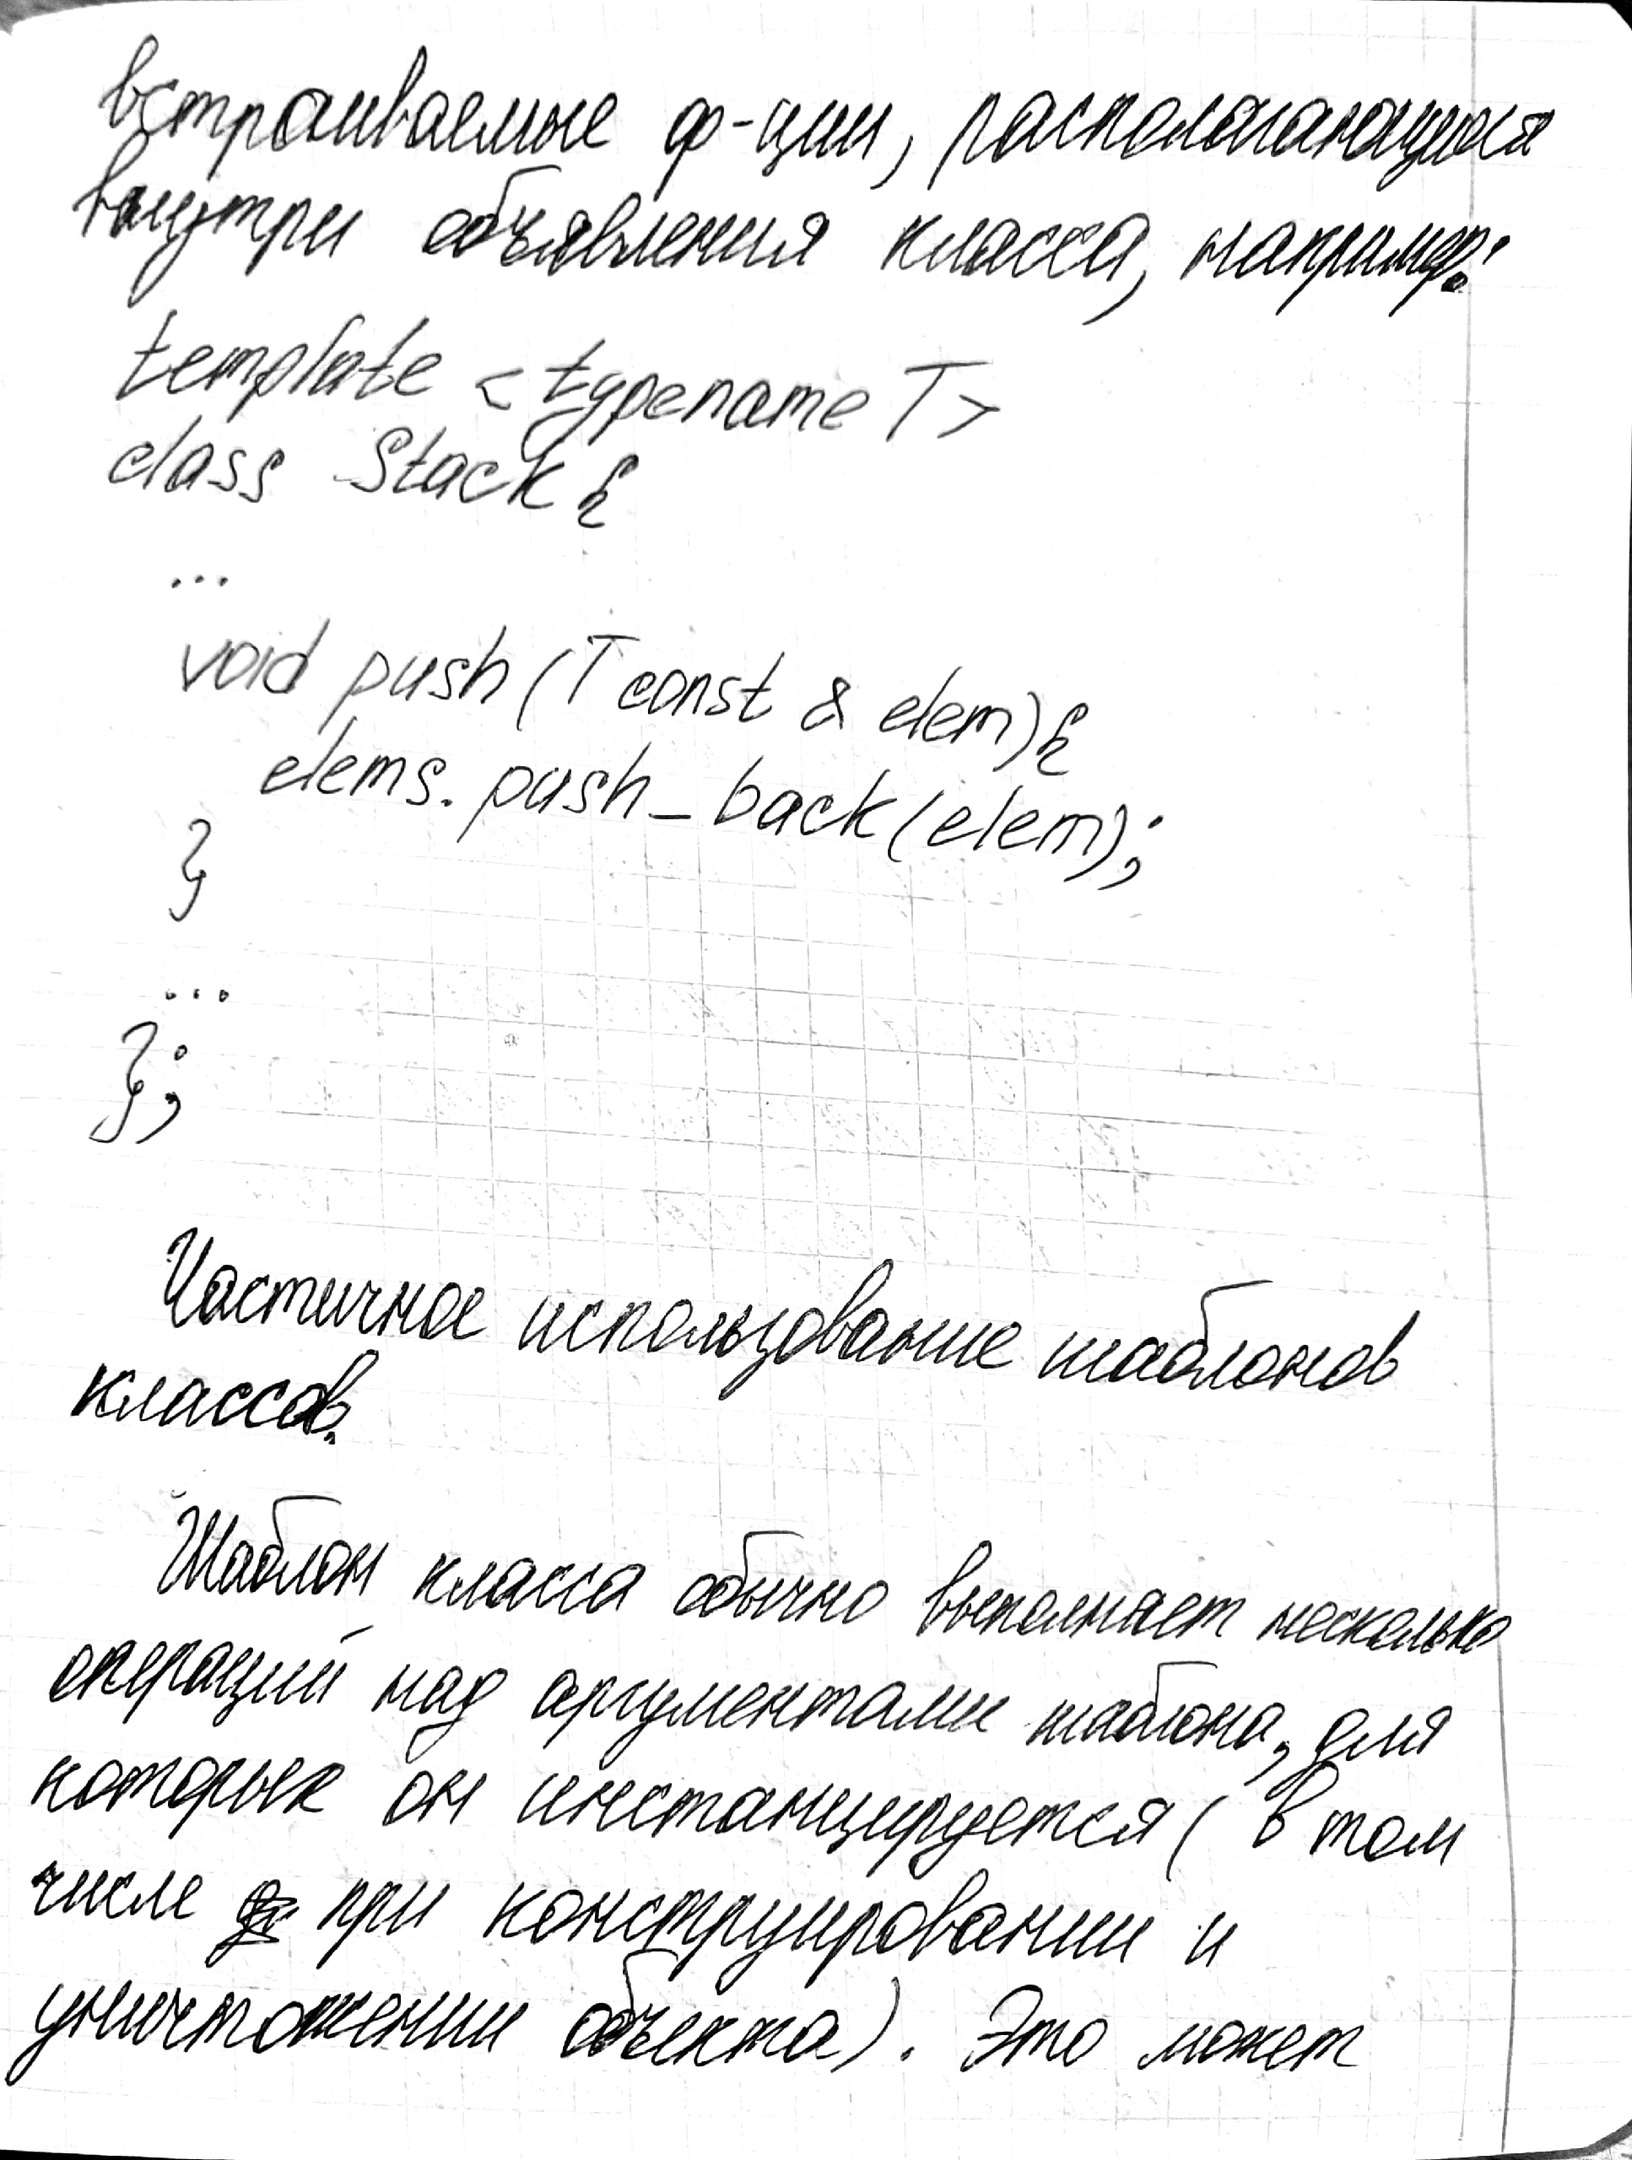 встраиваемые ф-ции, располагающиеся
внутри объявления класса, например:
template <typename T>
class Stack {
...
void push (T const & elem) {
elems. push_back (elem);
}
...
};
Частичное использование шаблонов
классов.
Шаблон класса обычно выполняет несколько
операций над аргументами шаблона, для
которых он инстанцируется (в том
числе при конструировании и
уничтожении объекта). Это может